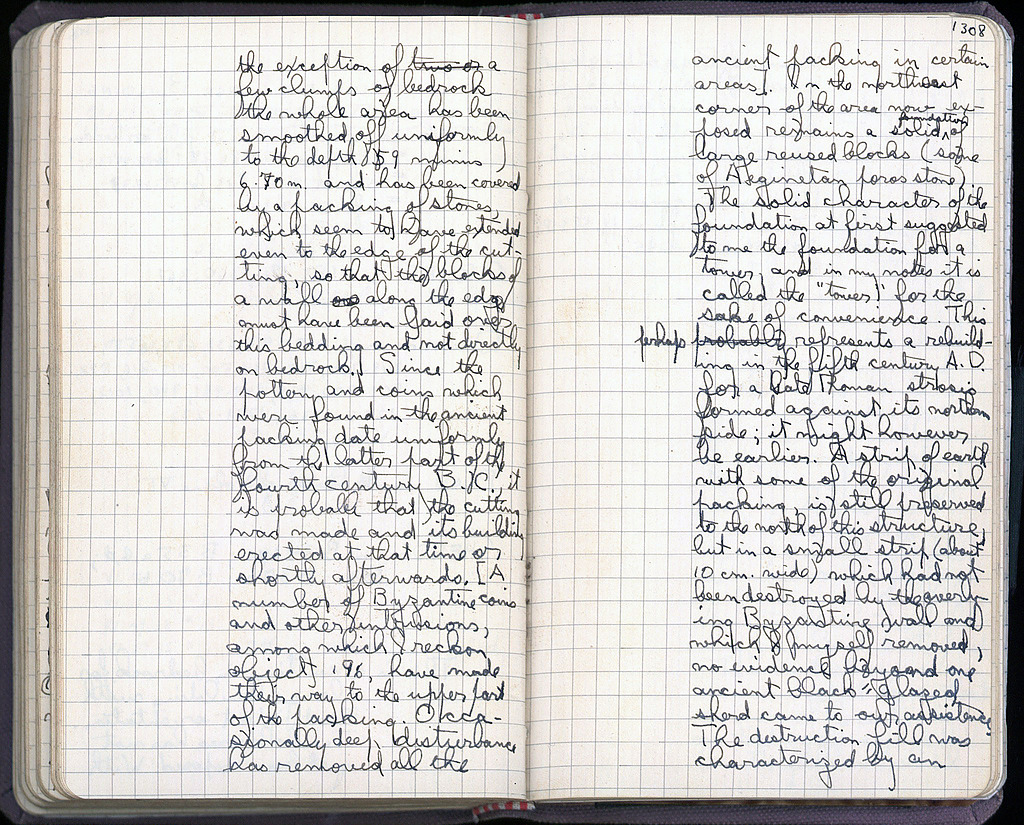 the exception of two or a
few clumps of bedrock
the whole area has been
smoothed off uniformly
to the depth 59 minus
6.70 m. and has been covered
by a packing of stones,
which seem to have extended
even to the edge of the cut-
ting, so that the blocks of
a wall along the edge
must have been laid over
this bedding and not directly
on bedrock. Since the
pottery and coins which
were found in the ancient
packing date uniformly
from the latter part of the
fourth century B.C. it
is probable that the cutting
was made and its building
erected at that time or
shortly afterwards. [A
number of Byzantine coins
and other intrusions,
among which I reckon
object 196, have made
their way to the upper part
of the packing. Occa-
sionally deep disturbance
has removed all the
1308
ancient packing in certain
areas]. In the northwest
corner of the area now ex-
posed remains a solid foundation of
large reused blocks (some
of Aeginetan poros stone).
The solid character of the
foundation at first suggested
to me the foundation for a
tower, and in my notes it is
called the "tower" for the
sake of convenience. This
perhaps probably represents a rebuild-
ing in the fifth century A.D.
for a Late Roman strosis
formed against its northern
side; it might however
be earlier. A strip of earth
with some of the original
packing, is still preserved
to the north of this structure,
but in a small strip (about
10 cm. wide) which had not
been destroyed by the overly-
ing Byzantine wall and
which I myself removed,
no evidence beyond one
ancient black-glazed
sherd came to our assistence.
The destruction fill was
characterized by an